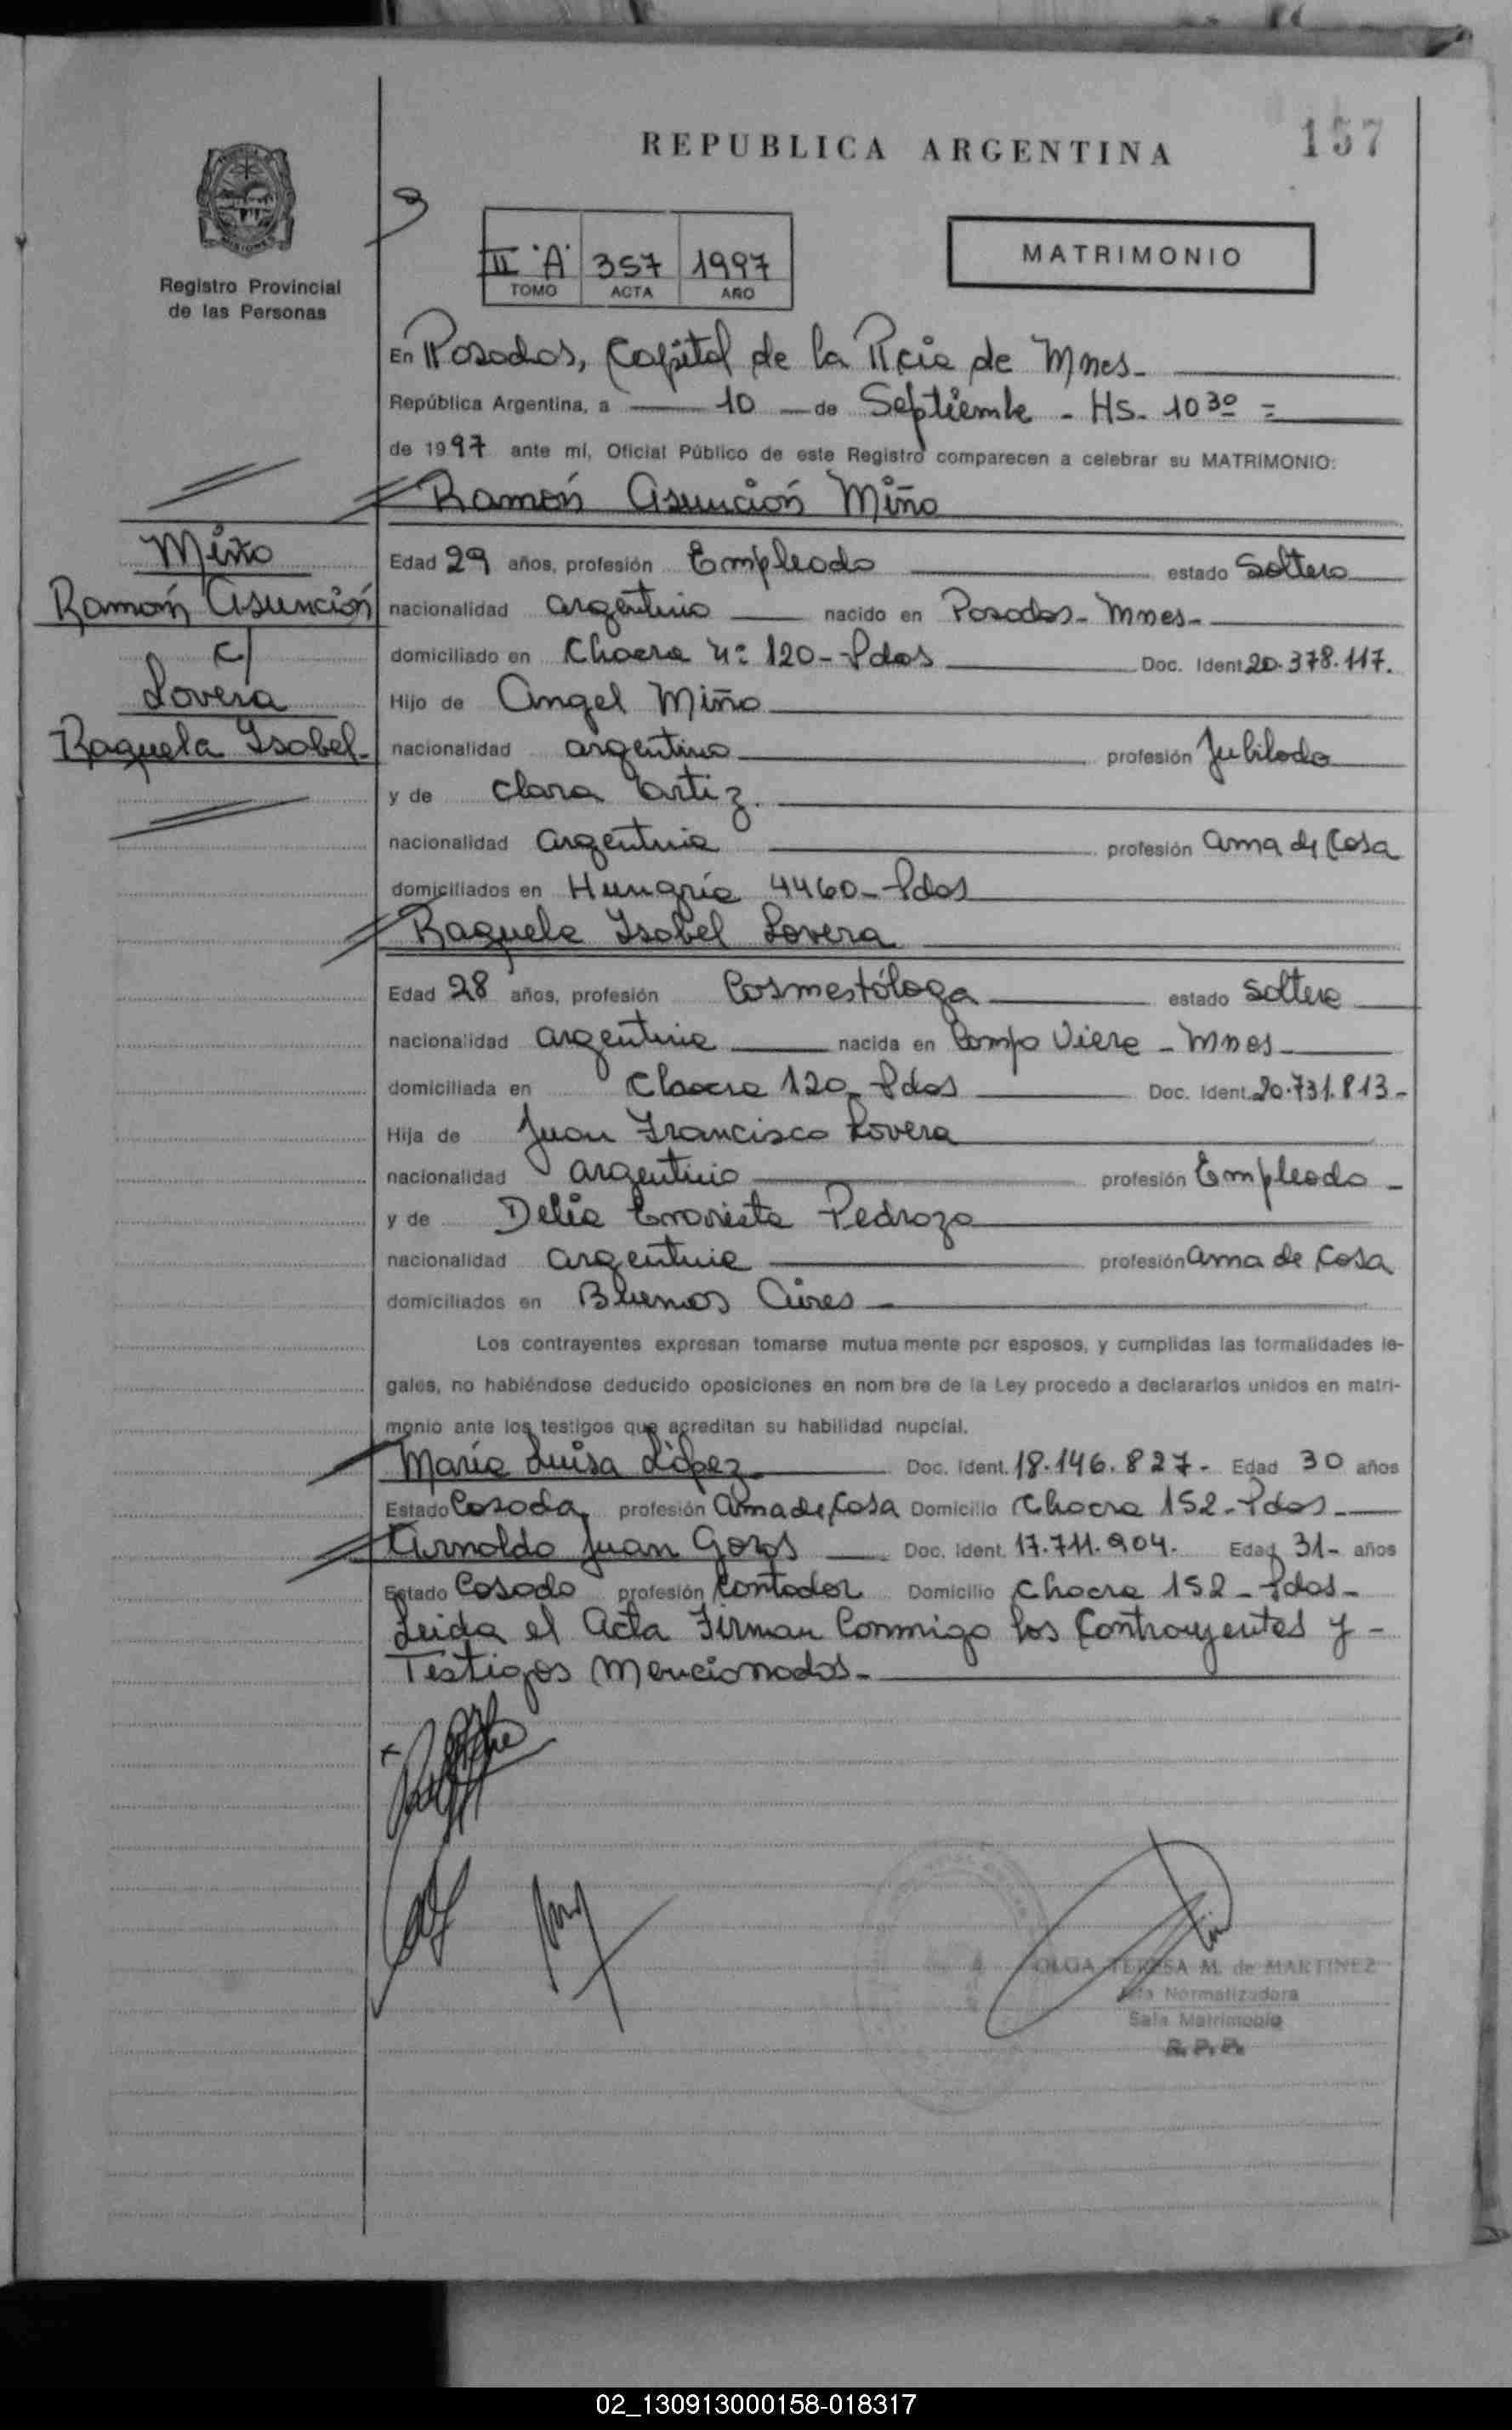 REPUBLICA ARGENTINA
157
Registro Provincial
de las Personas
II "A" 357 1997
TOMO ACTA AÑO
MATRIMONIO
En Posadas, Capital de la Pcia de Mnes-
República Argentina, a 10 de Septiembre - Hs. 10 30 =
de 1997 ante mí, Oficial Público de este Registro comparecen a celebrar su MATRIMONIO:
Ramón Asunción Miño
Miño
Ramón Asunción
c/
Lovera
Raquela Isabel-
Edad 29 años, profesión Empleado estado Soltero
nacionalidad argentino nacido en Posadas- Mnes-
domiciliado en Chacra nº 120- Pdas Doc. Ident. 20.378.117.
Hijo de Angel Miño
nacionalidad argentino profesión Jubilado
y de Clara
nacionalidad argentina profesión ama de Casa
domiciliados en Hungría 4460- Pdas
Raquela Isabel Lovera
Edad 28 años, profesión Cosmestóloga estado soltera
nacionalidad argentina nacida en Campo Viera - Mnes-
domiciliada en Chacra 120- Pdas Doc. Ident. 20.731.813-
Hija de Juan Francisco Lovera
nacionalidad argentino profesión Empleado -
y de Delia Pedrozo
nacionalidad argentina profesión ama de Casa
domiciliados en Buenos Aires -
Los contrayentes expresan tomarse mutua mente por esposos, y cumplidas las formalidades le-
gales, no habiéndose deducido oposiciones en nom bre de la Ley procedo a declararlos unidos en matri-
monio ante los testigos que acreditan su habilidad nupcial.
María Luisa López Doc. Ident. 18.146.827- Edad 30 años
Estado Casada profesión Ama de Casa Domicilio Chacra 152- Pdas-
Arnoldo Juan Doc. Ident. 17.711.904. Edad 31- años
Estado Casado profesión Contador Domicilio Chacra 152- Pdas-
Leida el Acta Firman Conmigo los Contrayentes y -
Testigos Mencionados-
OLGA TERESA M. de MARTINEZ
Jefa Normalizadora
Sala Matrimonio
R. P. P.
02_130913000158-018317